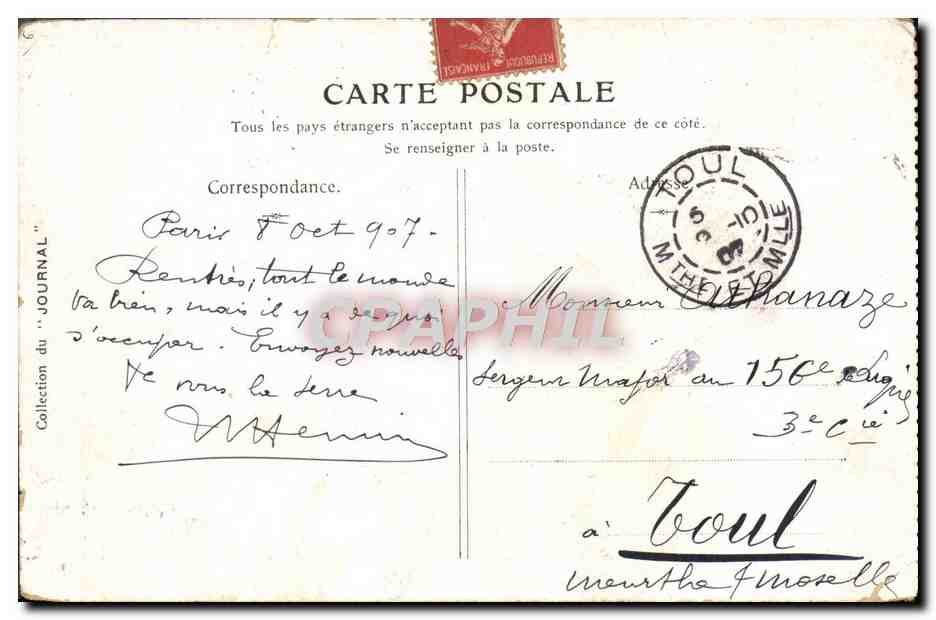 REPUBLIQUE FRANÇAISE
CARTE POSTALE
Tous les pays étrangers n'acceptant pas la correspondance de ce côté.
Se renseigner à la poste.
Correspondance.
Adresse
TOUL
MTHE ET MLLE
Paris 8 Oct 907.
Rentrés, tout le monde
va bien, mais il y a de quoi
s'occuper. Envoyez nouvelles
Je vous la serre
Collection du "JOURNAL"
CPAPHIL
Monsieur Athanaze
Sergent Major au 156e
3e Cie
à Toul
Meurthe & Moselle